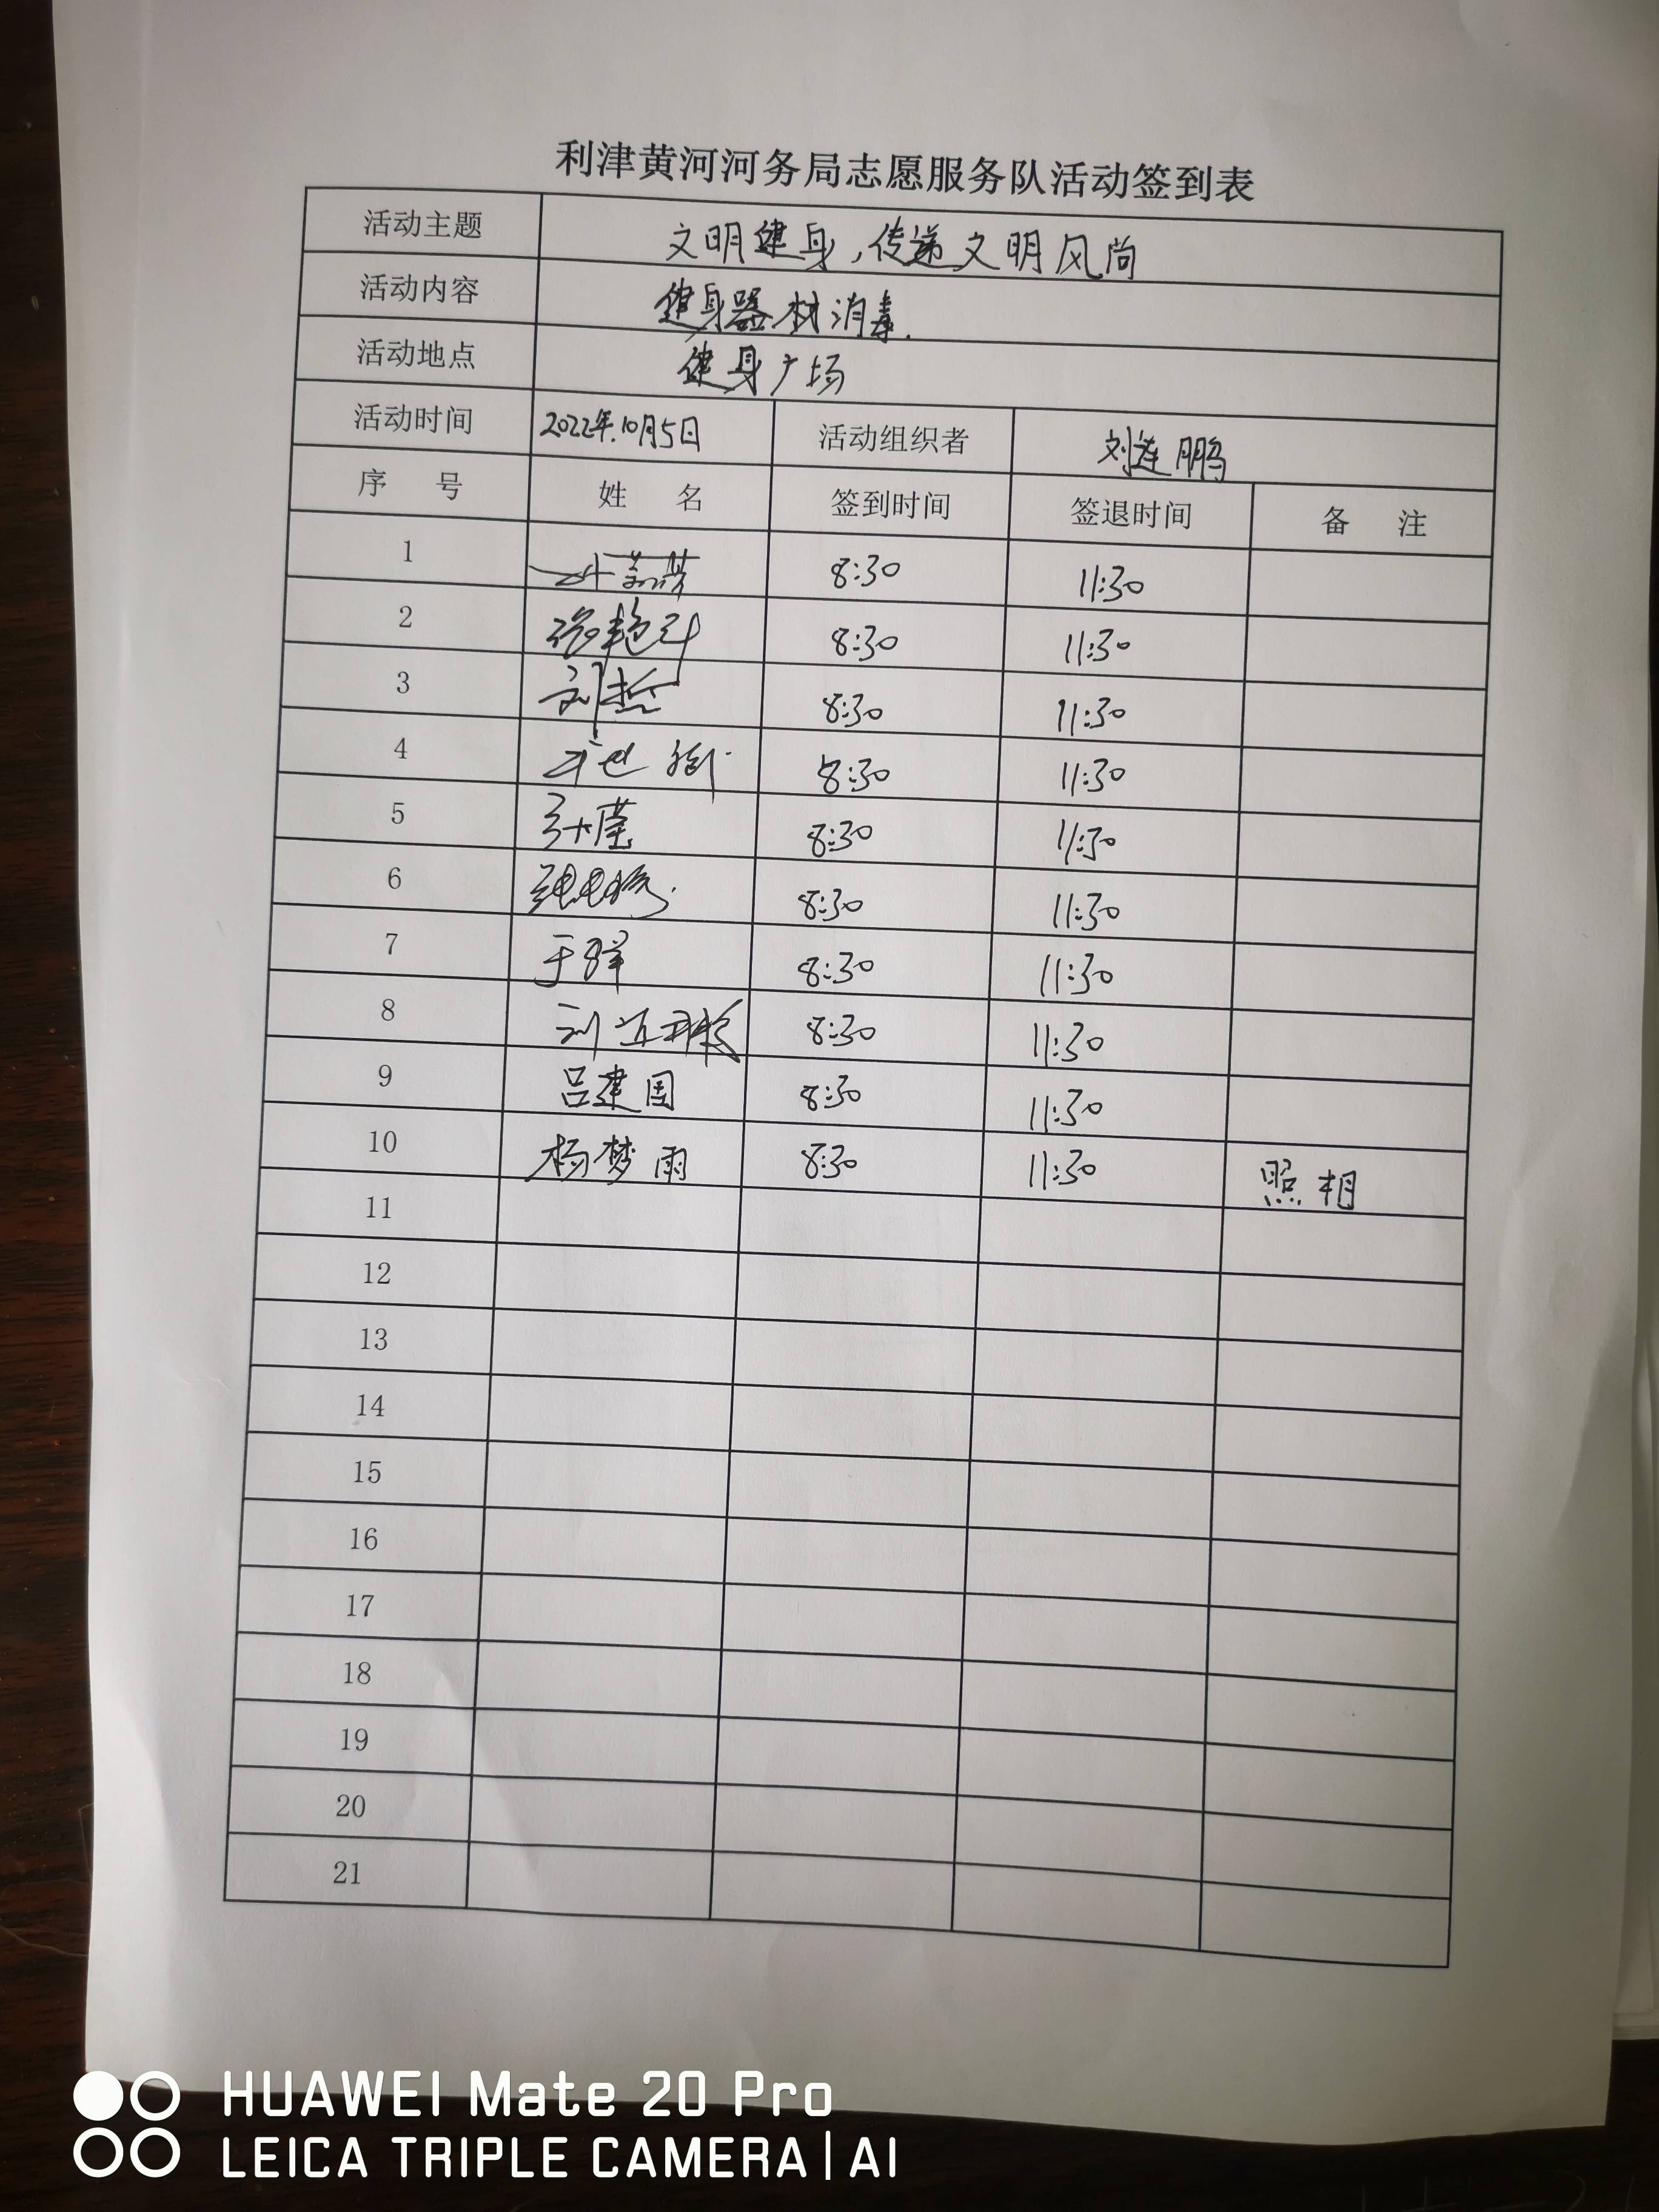 利津黄河河务局志愿服务队活动签到表
活动主题 文明健身,传递文明风尚
活动内容 健身器材消毒.
活动地点 健身广场
活动时间 2022年10月5日 活动组织者 刘连鹏
序 号 姓 名 签到时间 签退时间 备 注
1 8:30 11:30
2 8:30 11:30
3 刘哲 8:30 11:30
4 8:30 11:30
5 8:30 11:30
6 8:30 11:30
7 于群 8:30 11:30
8 8:30 11:30
9 吕建国 8:30 11:30
10 杨梦雨 8:30 11:30 照相
11
12
13
14
15
16
17
18
19
20
21
HUAWEI Mate 20 Pro
LEICA TRIPLE CAMERA | AI